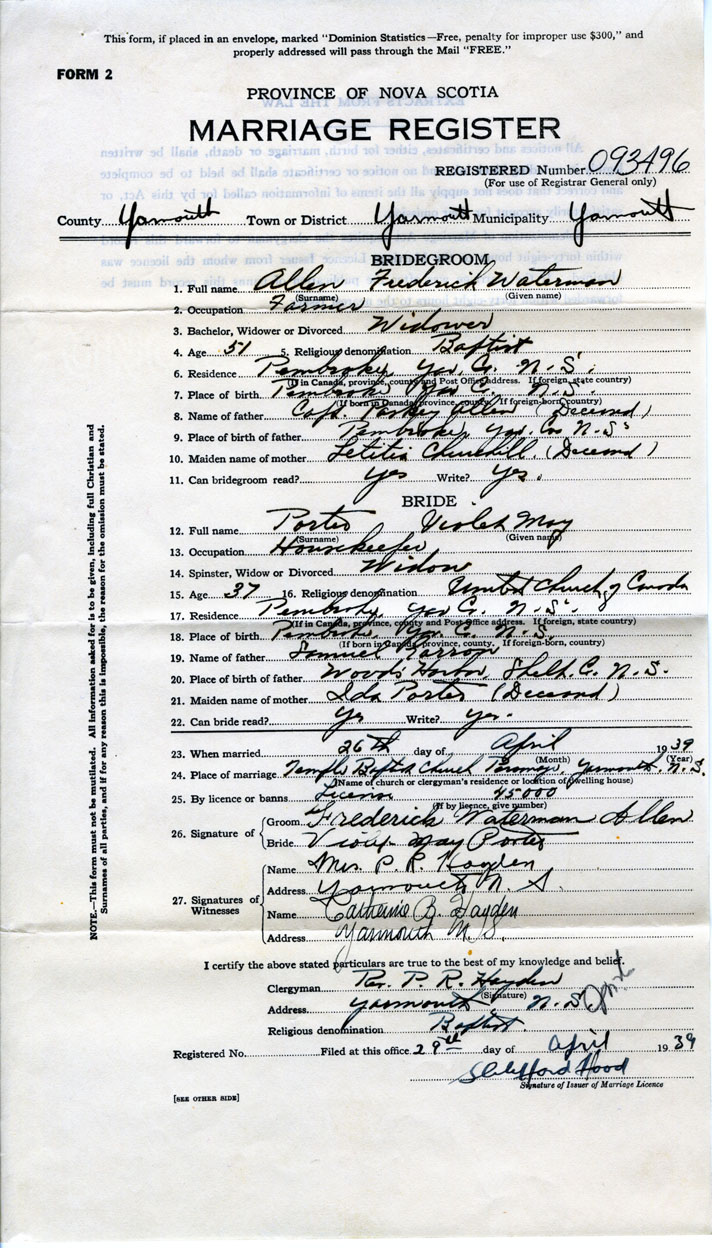 This form, if placed in an envelope, marked "Dominion Statistics—Free, penalty for improper use $300," and
properly addressed will pass through the Mail "FREE."
FORM 2
PROVINCE OF NOVA SCOTIA
MARRIAGE REGISTER
REGISTERED Number 093496
(For use of Registrar General only)
County Yarmouth Town or District Yarmouth Municipality Yarmouth
BRIDEGROOM
1. Full name Allen Frederick Waterman
(Surname) (Given name)
2. Occupation Farmer
3. Bachelor, Widower or Divorced Widower
4. Age 51 5. Religious denomination Baptist
6. Residence Pembroke, Yar. Co. N.S.
(If in Canada, province, county and Post Office address. If foreign, state country)
7. Place of birth Pembroke Yar. Co. N.S.
(If born in Canada, province, county. If foreign-born, country)
8. Name of father Capt. Allen (Deceased)
9. Place of birth of father Pembroke, Yar. Co. N.S.
10. Maiden name of mother Letitia Churchill. (Deceased)
11. Can bridegroom read? Yes Write? Yes.
BRIDE
12. Full name Porter Violet May
(Surname) (Given name)
13. Occupation Housekeeper
14. Spinster, Widow or Divorced Widow
15. Age 37 16. Religious denomination United Church of Canada
17. Residence Pembroke, Yar. Co. N.S.
(If in Canada, province, county and Post Office address. If foreign, state country)
18. Place of birth Pembroke, Yar. Co. N.S.
(If born in Canada, province, county. If foreign-born, country)
19. Name of father Samuel
20. Place of birth of father Woods Harbor, Shelb. Co. N.S.
21. Maiden name of mother Ida Porter (Deceased)
22. Can bride read? Yes Write? Yes.
23. When married 26th day of April 1939
(Month) (Year)
24. Place of marriage Temple Baptist Church Parsonage, Yarmouth, N.S.
(Name of church or clergyman's residence or location of dwelling house)
25. By licence or banns License 45000
(If by licence, give number)
26. Signature of
Groom Frederick Waterman Allen
Bride Violet May Porter
27. Signatures of Witnesses
Name Mrs. P. R. Hayden
Address Yarmouth N. S.
Name Catherine B. Hayden
Address Yarmouth N.S.
I certify the above stated particulars are true to the best of my knowledge and belief.
Clergyman Rev. P. R. Hayden
(Signature)
Address Yarmouth, N.S.
Religious denomination Baptist
Registered No. Filed at this office 29th day of April 1939
Hood
Signature of Issuer of Marriage Licence
[SEE OTHER SIDE]
NOTE.—This form must not be mutilated. All information asked for is to be given, including full Christian and
Surnames of all parties, and if for any reason this is impossible, the reason for the omission must be stated.